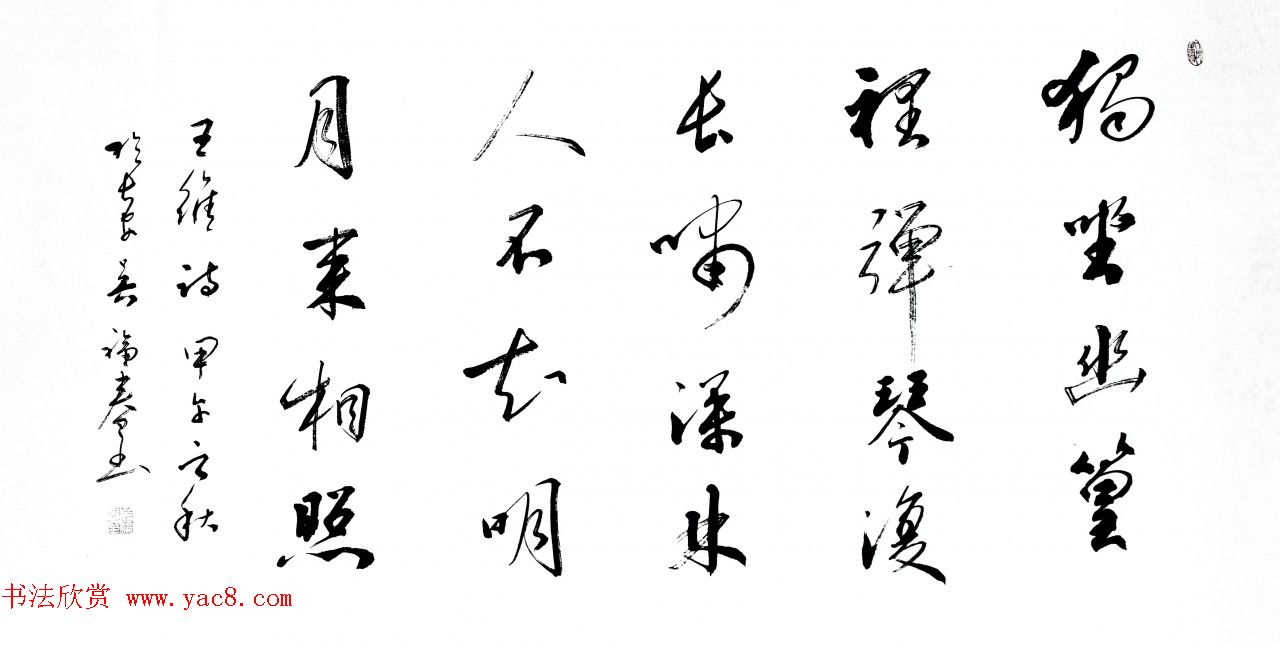 獨坐幽篁
裡彈琴復
长嘯深林
人不知明
月来相照
王維詩 甲午之秋
於长安 吴福春书
书法欣赏 www.yac8.com